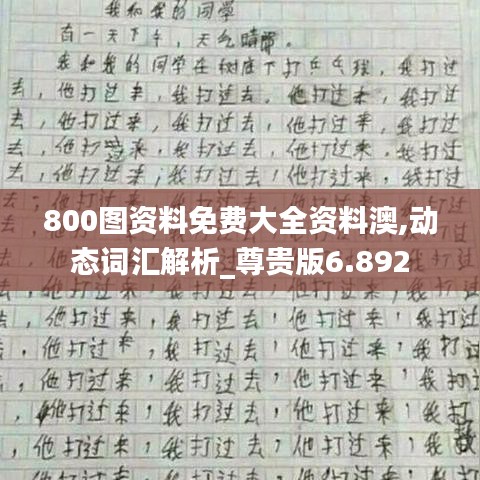 我和我的同学
一天下午，天么晴
我和我的同学在树底下打乒乓球，我打过
去，他打过来，我打过去，他打过来，我打过
去，他打过来，我打过去，他打过来，我打过
去，他打过来，我打过去，他打过来，我打过
去，他打过来，我打过去，他打过来，我打过
800图资料免费大全资料澳,动
态词汇解析_尊贵版6.892
，他打过来，我打过去，他打过来，我打过
，他打过来，我打过去，他打过来，我打过
，他打过来，我打过去，他打过来，我打过去
，他打过来，我打过去，他打过来，我打过去
，他打过来，我打过去，他打过来，我打过去
，他打过来，我打过去，他打过来，我打过去